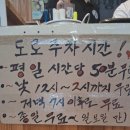 도로 주차시간!
평일 시간당 50분무료
낮 12시~2시까지 무료
저녁 7시 이후 무료
종일 무료 (일요일 간)